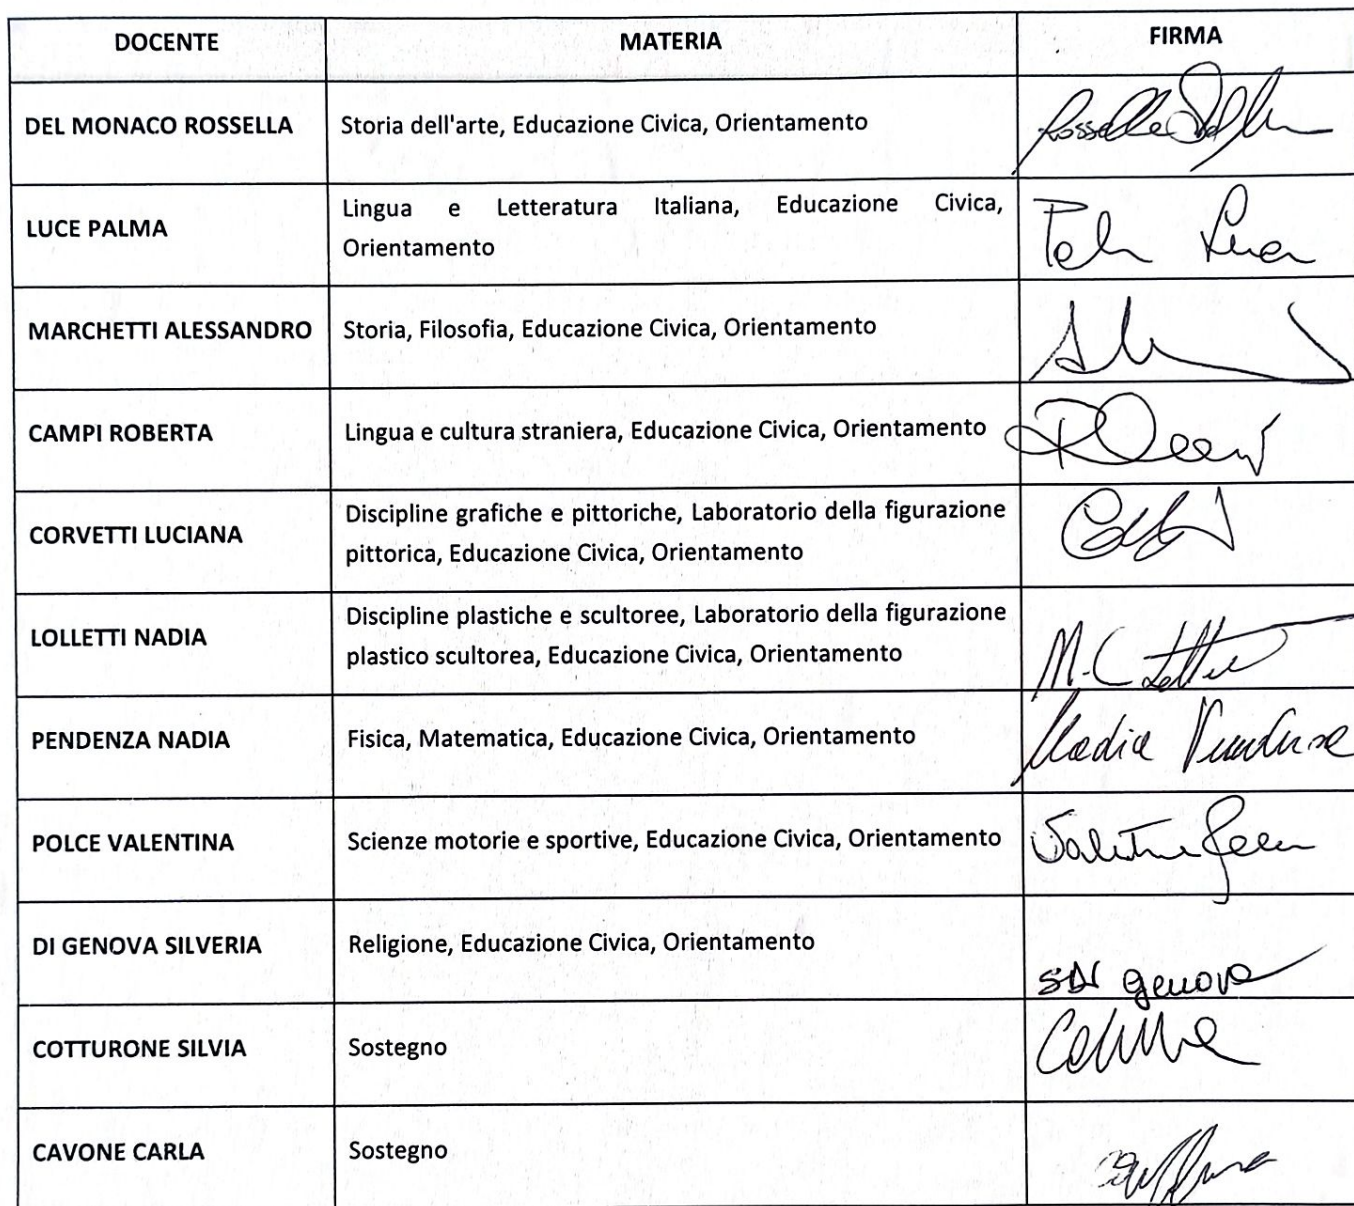 DOCENTE MATERIA FIRMA
DEL MONACO ROSSELLA Storia dell'arte, Educazione Civica, Orientamento Rossella
LUCE PALMA Lingua e Letteratura Italiana, Educazione Civica,
Orientamento
MARCHETTI ALESSANDRO Storia, Filosofia, Educazione Civica, Orientamento
CAMPI ROBERTA Lingua e cultura straniera, Educazione Civica, Orientamento
CORVETTI LUCIANA Discipline grafiche e pittoriche, Laboratorio della figurazione
pittorica, Educazione Civica, Orientamento
LOLLETTI NADIA Discipline plastiche e scultoree, Laboratorio della figurazione
plastico scultorea, Educazione Civica, Orientamento
PENDENZA NADIA Fisica, Matematica, Educazione Civica, Orientamento Nadia
POLCE VALENTINA Scienze motorie e sportive, Educazione Civica, Orientamento
DI GENOVA SILVERIA Religione, Educazione Civica, Orientamento
genova
COTTURONE SILVIA Sostegno
CAVONE CARLA Sostegno